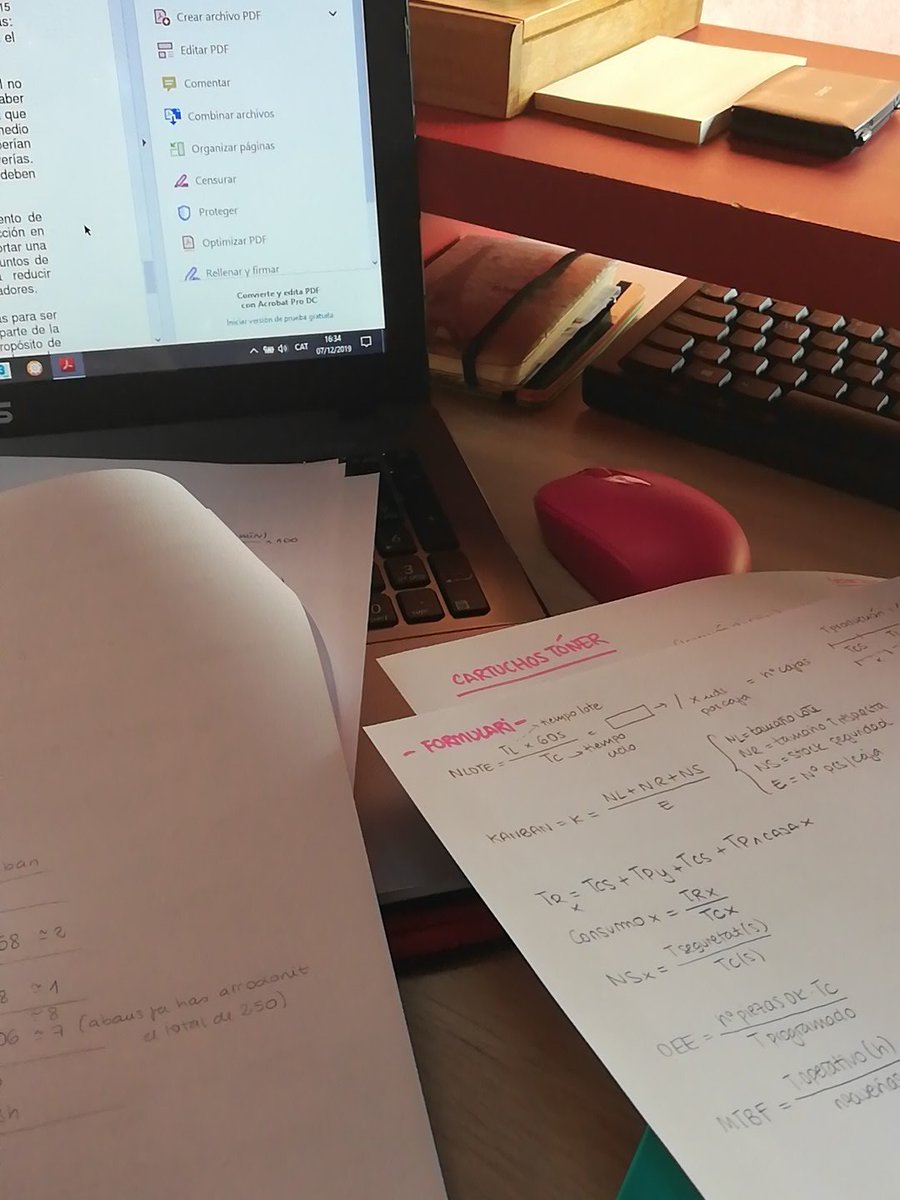 15
as:
el
no
aber
que
medio
berían
verías.
deben
ento de
cción en
ortar una
untos de
reducir
adores.
as para ser
parte de la
propósito de
Crear archivo PDF
Editar PDF
Comentar
Combinar archivos
Organizar páginas
Censurar
Proteger
Optimizar PDF
Rellenar y firmar
Convierte y edita PDF
con Acrobat Pro DC
Iniciar versión de prueba gratuita
CAT
16:34
07/12/2019
min)
x 100
3
0
CARTUCHOS TÓNER
- FORMULARI -
NLOTE = TL x 60s / TC = → / x uds por caja = nº cajas
→ tiempo lote
→ tiempo udo
NL = tamaño lote
NR = tamaño
NS = stock seguridad
E = Nº pcs/caja
KANBAN = K = NL + NR + NS / E
TRx = Tcs + TPy + Tcs + TPn casa x
Consumo x = TRx / TCx
NSx = Tseguretat(s) / TC(s)
OEE = nº piezas OK · TC / T programado
MTBF = Toperativo (h) /
ban
58 ≃ 2
8 ≃ 1
≃ 8
06 ≃ 7 (abans ja has arrodonit
el total de 250)